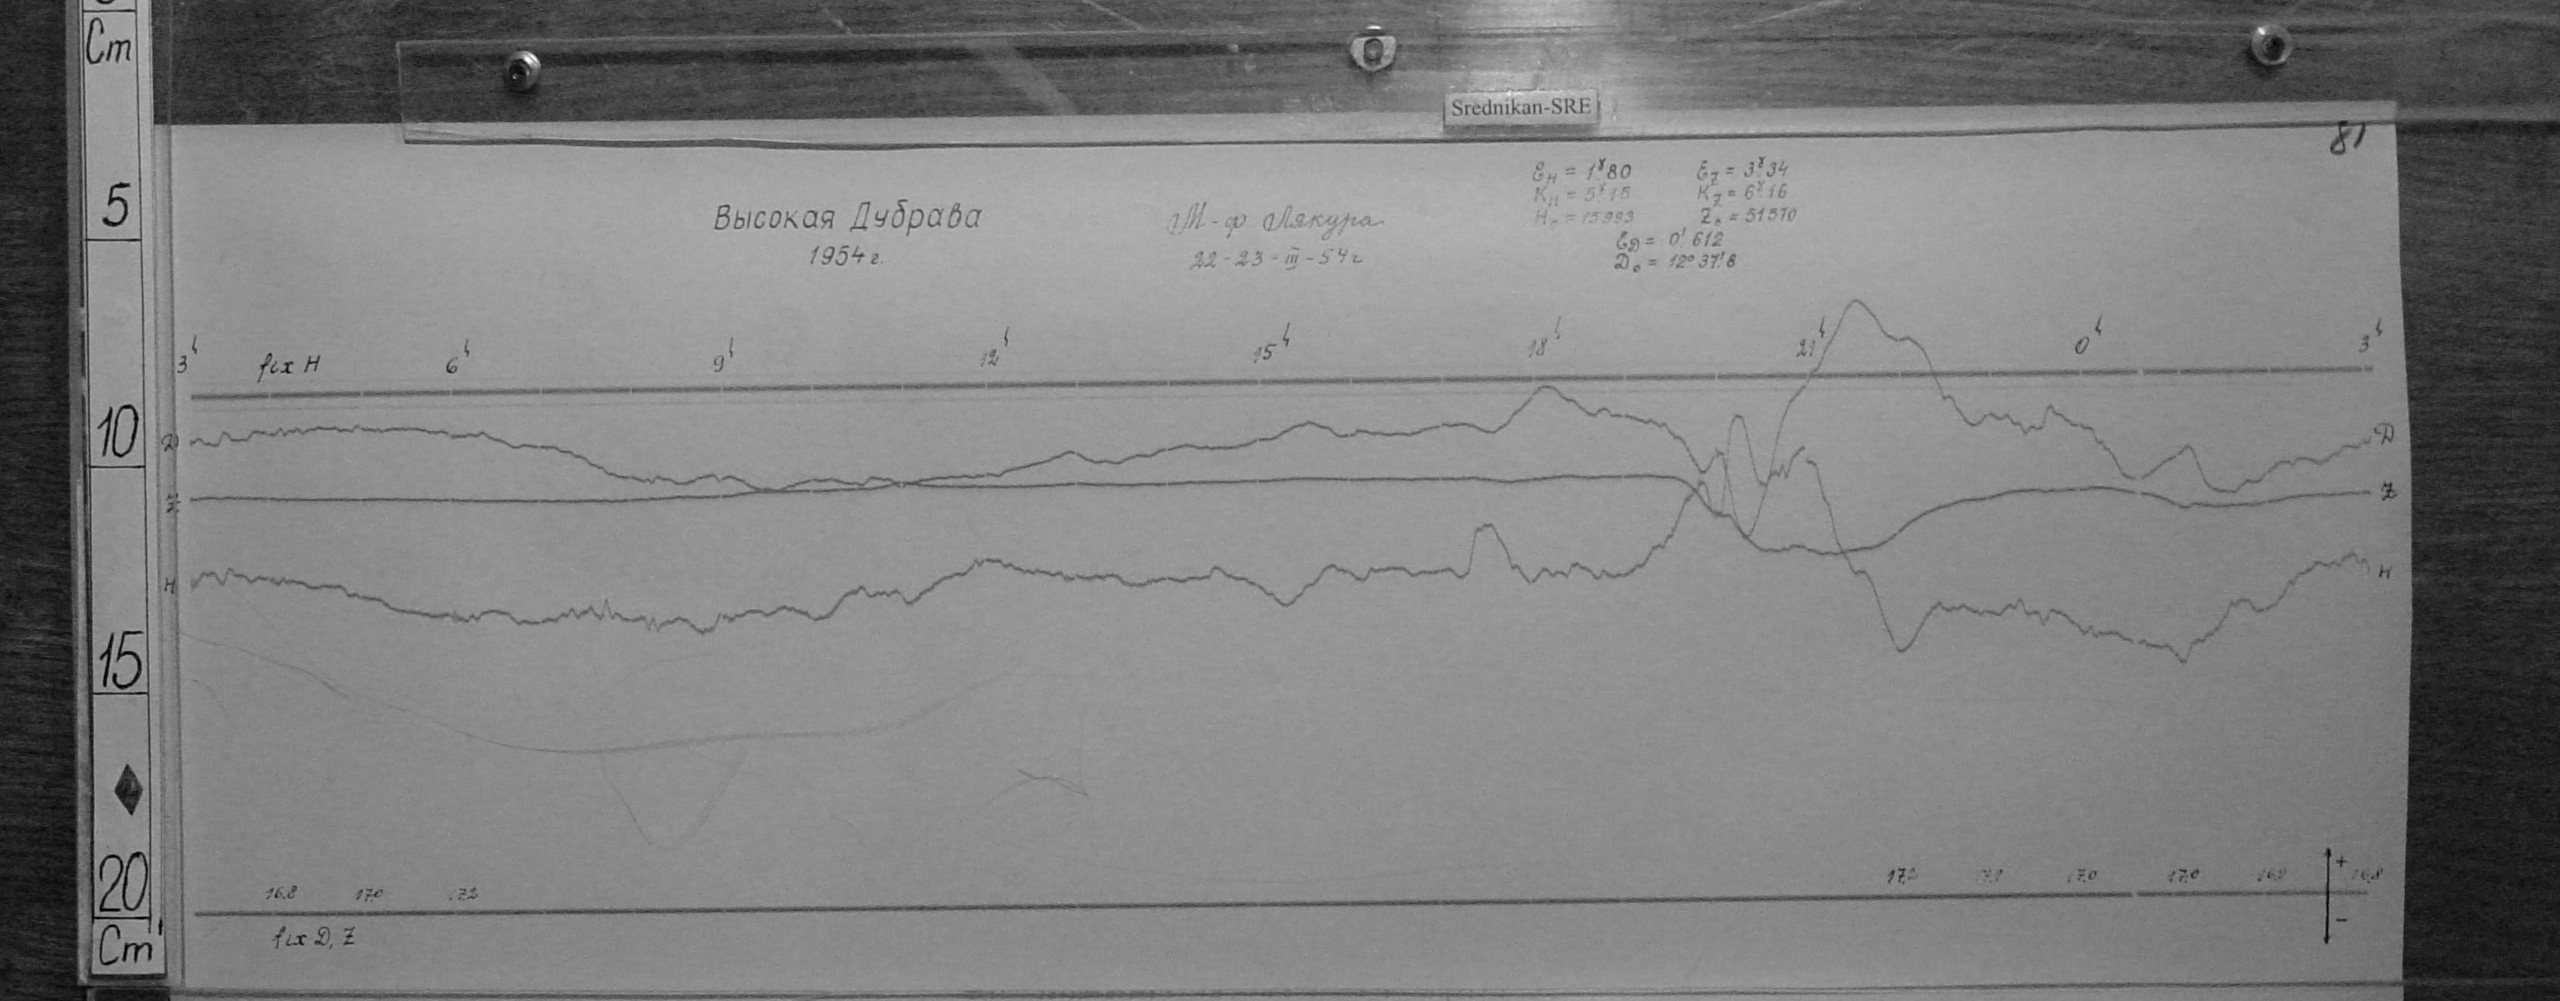 Cm
5
10
15
20
Cm
Srednikan-SRE
81
Высокая Дубрава
1954 г.
М-ф Лякура
22-23-III-54 г
E_H = 1ˠ.80 E_Z = 3ˠ.34
K_H = 5ˠ.15 K_Z = 6ˠ.16
H₀ = 15993 Z₀ = 51570
E_D = 0'.612
D₀ = 12°37'.8
3ʰ fix H 6ʰ 9ʰ 12ʰ 15ʰ 18ʰ 21ʰ 0ʰ 3ʰ
D D
Z Z
H H
16.8 17.0 17.2 17.2 17.0 17.0 16.8 +
fix D, Z −